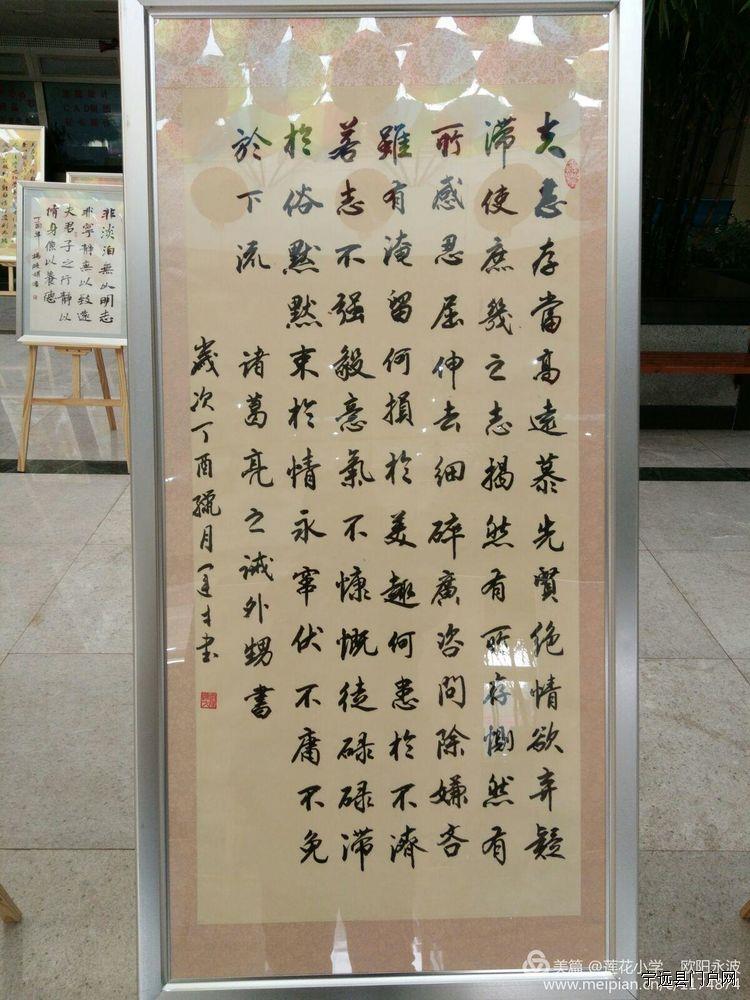 夫志存當高遠慕先賢絶情欲弃疑
滞使庶幾之志揭然有所存惻然有
所感忍屈伸去細碎廣咨問除嫌吝
雖有淹留何損於美趣何患於不濟
若志不强毅意氣不慷慨徒碌碌滞
於俗黙黙束於情永窜伏不庸不免
於下流
諸葛亮之誡外甥書
歲次丁酉臘月
書
非淡泊無以明志
非寧静無以致遠
夫君子之行静以
脩身儉以養德
丁酉年
美篇 @莲花小学 欧阳永波
宁远县门户网